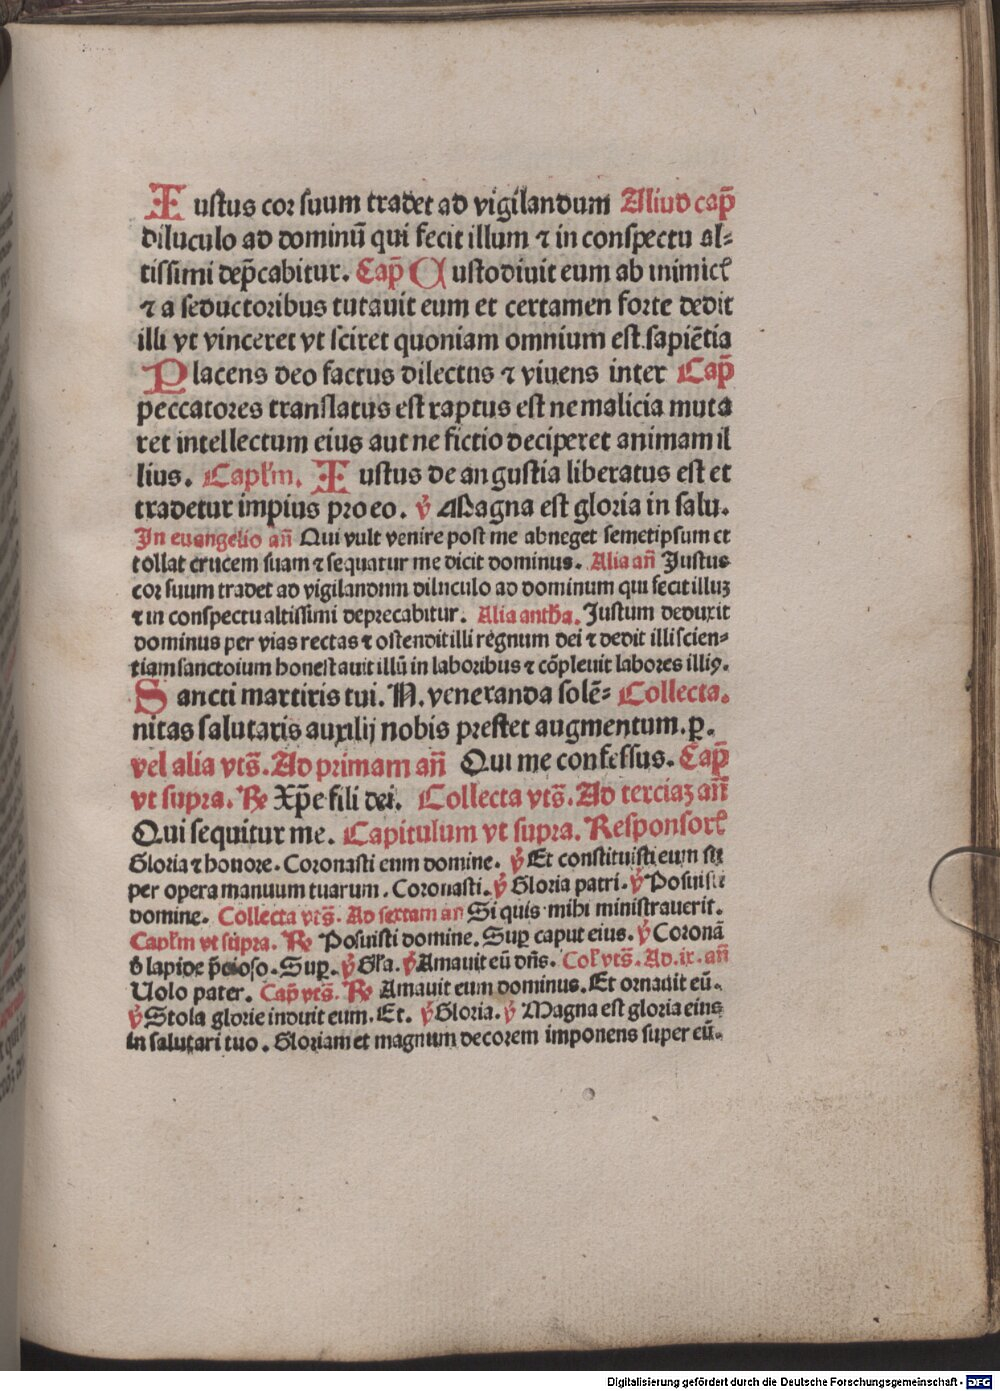 Iustus cor suum tradet ad vigilandum Aliud cap̄
diluculo ad dominū qui fecit illum ⁊ in conspectu al⸗
tissimi dep̄cabitur. Cap̄ Custodiuit eum ab inimicꝭ
⁊ a seductoribus tutauit eum et certamen forte dedit
illi vt vinceret vt sciret quoniam omnium est sapiētia
Placens deo factus dilectus ⁊ viuens inter Cap̄
peccatores translatus est raptus est ne malicia muta
ret intellectum eius aut ne fictio deciperet animam il
lius. Capl'm. Iustus de angustia liberatus est et
tradetur impius pro eo. ℣ Magna est gloria in salu.
In euangelio añ Qui vult venire post me abneget semetipsum et
tollat crucem suam ⁊ sequatur me dicit dominus. Alia añ Justus
cor suum tradet ad vigilandum diluculo ad dominum qui fecit illuꝫ
⁊ in conspectu altissimi deprecabitur. Alia antha. Justum deduxit
dominus per vias rectas ⁊ ostendit illi regnum dei ⁊ dedit illi scien⸗
tiam sanctoium honestauit illū in laboribus ⁊ cōpleuit labores illiꝰ.
Sancti martiris tui. N. veneranda solē⸗ Collecta.
nitas salutaris auxilij nobis prestet augmentum. p̲.
vel alia vts̄. Ad primam añ Qui me confessus. Cap̄
vt supra. ℞ Xp̄e fili dei. Collecta vts̄. Ad terciaꝫ añ
Qui sequitur me. Capitulum vt supra. Responsorꝭ
Gloria ⁊ honore. Coronasti eum domine. ℣ Et constituisti eum su
per opera manuum tuarum. Coronasti. ℣ Gloria patri. ℣ Posuisti
domine. Collecta vts̄. Ad sextam añ Si quis mihi ministrauerit.
Capl'm vt supra. ℞ Posuisti domine. Sup̲ caput eius. ℣ Coronā
d̄ lapide p̄cioso. Sup̲. ℣ Gl'a. ℣ Amauit eū dñs. Col' vts̄. Ad. ix. añ
Uolo pater. Cap̄ vts̄. ℞ Amauit eum dominus. Et ornauit eū.
℣ Stola glorie induit eum. Et. ℣ Gloria. ℣ Magna est gloria eius
in salutari tuo. Gloriam et magnum decorem imponens super eū.
Digitalisierung gefördert durch die Deutsche Forschungsgemeinschaft - DFG